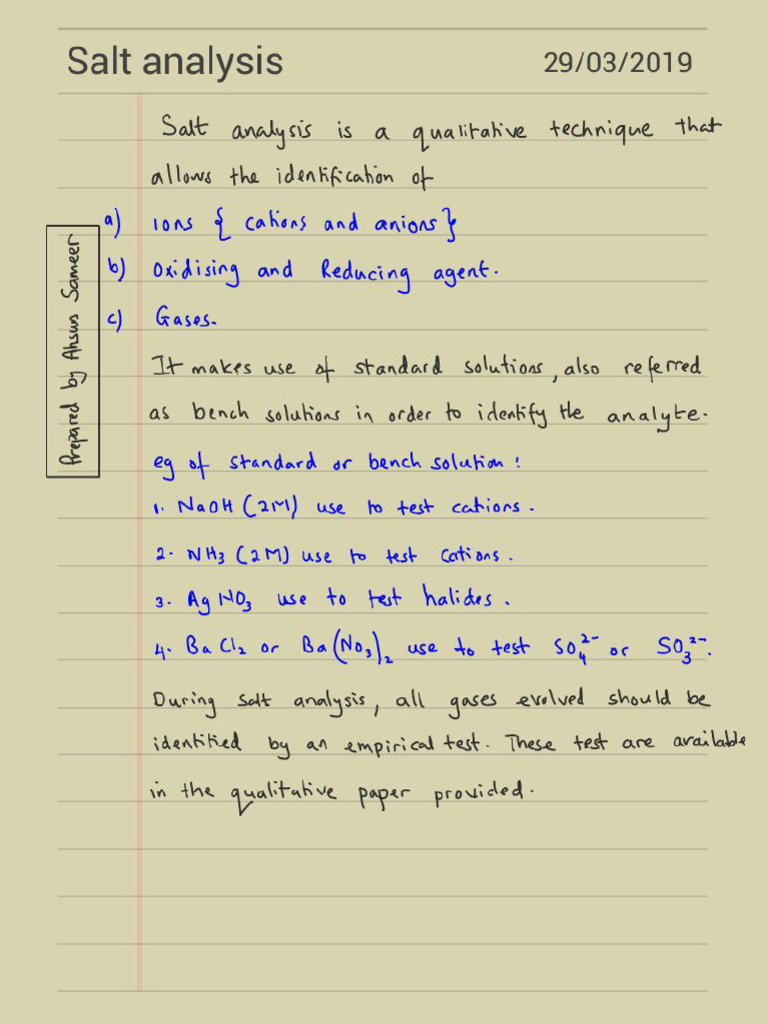 Salt analysis 29/03/2019
Salt analysis is a qualitative technique that
allows the identification of
a) Ions { cations and anions}
b) Oxidising and Reducing agent.
c) Gases.
Prepared by Ahsun Sameer
It makes use of standard solutions, also referred
as bench solutions in order to identify the analyte.
eg of standard or bench solution:
1. NaOH (2M) use to test cations.
2. NH₃ (2M) use to test cations.
3. AgNO₃ use to test halides.
4. BaCl₂ or Ba(NO₃)₂ use to test SO₄²⁻ or SO₃²⁻.
During salt analysis, all gases evolved should be
identified by an empirical test. These test are available
in the qualitative paper provided.